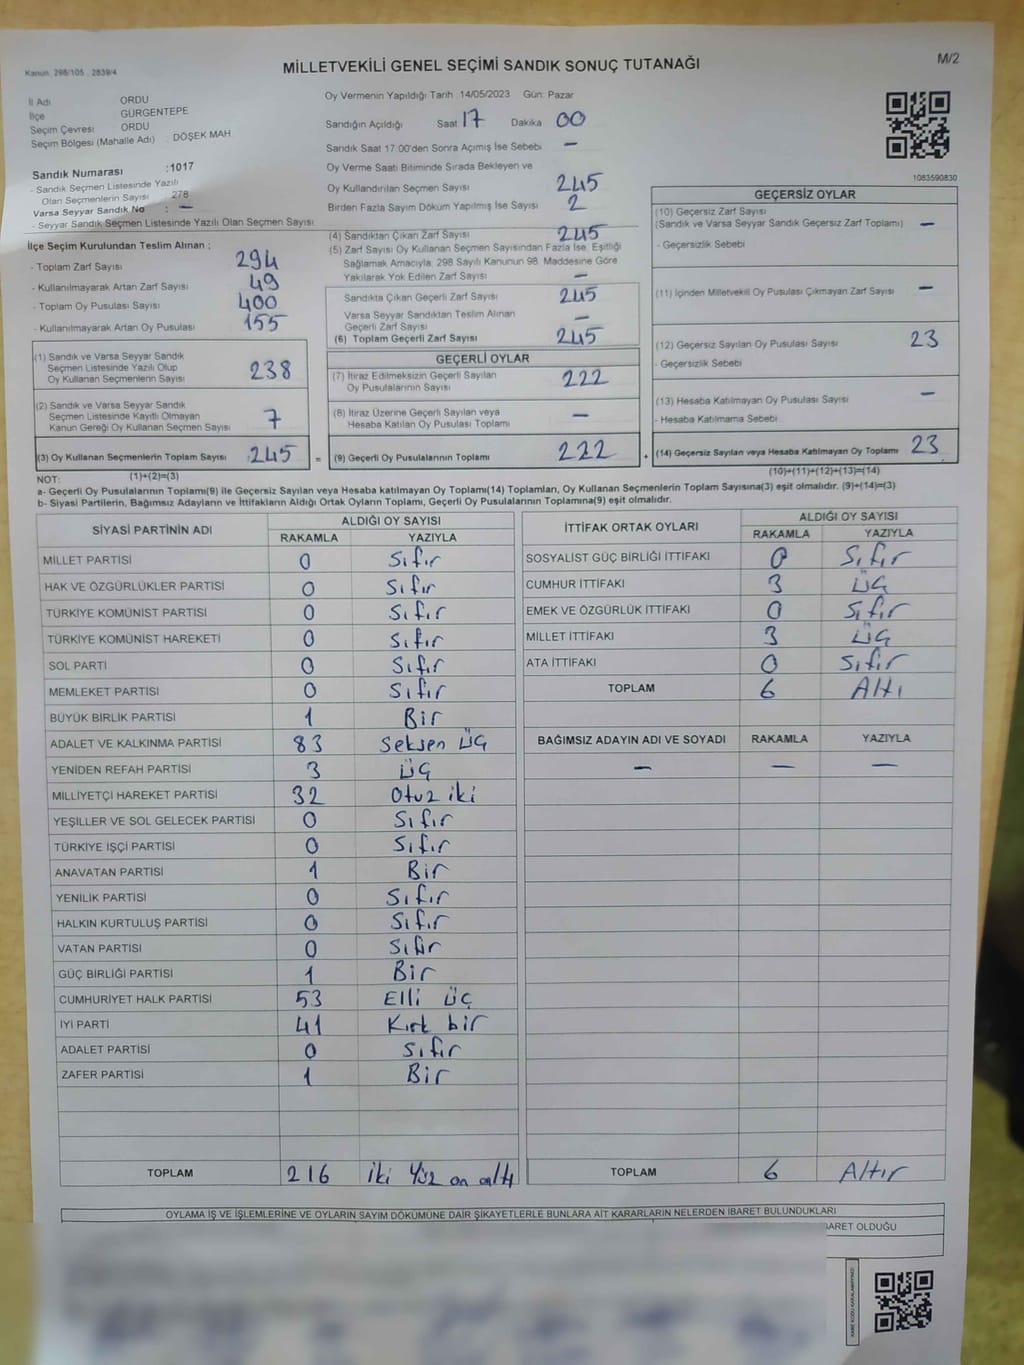 Kanun. 298/105 . 2839/4
MİLLETVEKİLİ GENEL SEÇİMİ SANDIK SONUÇ TUTANAĞI
M/2
İl Adı ORDU
İlçe GÜRGENTEPE
Seçim Çevresi ORDU
Seçim Bölgesi (Mahalle Adı) DÖŞEK MAH
Sandık Numarası :1017
- Sandık Seçmen Listesinde Yazılı
Olan Seçmenlerin Sayısı 278
Varsa Seyyar Sandık No : —
- Seyyar Sandık Seçmen Listesinde Yazılı Olan Seçmen Sayısı
Oy Vermenin Yapıldığı Tarih :14/05/2023 Gün: Pazar
Sandığın Açıldığı Saat 17 Dakika 00
Sandık Saat 17:00'den Sonra Açımış İse Sebebi —
Oy Verme Saati Bitiminde Sırada Bekleyen ve
Oy Kullandırılan Seçmen Sayısı 245
Birden Fazla Sayım Döküm Yapılmış İse Sayısı 2
1083590830
İlçe Seçim Kurulundan Teslim Alınan ;
- Toplam Zarf Sayısı 294
- Kullanılmayarak Artan Zarf Sayısı 49
- Toplam Oy Pusulası Sayısı 400
- Kullanılmayarak Artan Oy Pusulası 155
(1) Sandık ve Varsa Seyyar Sandık
Seçmen Listesinde Yazılı Olup
Oy Kullanan Seçmenlerin Sayısı 238
(2) Sandık ve Varsa Seyyar Sandık
Seçmen Listesinde Kayıtlı Olmayan
Kanun Gereği Oy Kullanan Seçmen Sayısı 7
(3) Oy Kullanan Seçmenlerin Toplam Sayısı 245 =
(1)+(2)=(3)
(4) Sandıktan Çıkan Zarf Sayısı 245
(5) Zarf Sayısı Oy Kullanan Seçmen Sayısından Fazla İse, Eşitliği
Sağlamak Amacıyla, 298 Sayılı Kanunun 98. Maddesine Göre
Yakılarak Yok Edilen Zarf Sayısı —
Sandıkta Çıkan Geçerli Zarf Sayısı 245
Varsa Seyyar Sandıktan Teslim Alınan
Geçerli Zarf Sayısı —
(6) Toplam Geçerli Zarf Sayısı 245
GEÇERLİ OYLAR
(7) İtiraz Edilmeksizin Geçerli Sayılan
Oy Pusulalarının Sayısı 222
(8) İtiraz Üzerine Geçerli Sayılan veya
Hesaba Katılan Oy Pusulası Toplamı —
(9) Geçerli Oy Pusulalarının Toplamı 222 +
GEÇERSİZ OYLAR
(10) Geçersiz Zarf Sayısı
(Sandık ve Varsa Seyyar Sandık Geçersiz Zarf Toplamı) —
- Geçersizlik Sebebi
(11) İçinden Milletvekili Oy Pusulası Çıkmayan Zarf Sayısı —
(12) Geçersiz Sayılan Oy Pusulası Sayısı 23
- Geçersizlik Sebebi
(13) Hesaba Katılmayan Oy Pusulası Sayısı —
- Hesaba Katılmama Sebebi
(14) Geçersiz Sayılan veya Hesaba Katılmayan Oy Toplamı 23
(10)+(11)+(12)+(13)=(14)
NOT:
a- Geçerli Oy Pusulalarının Toplamı(9) ile Geçersiz Sayılan veya Hesaba katılmayan Oy Toplamı(14) Toplamları, Oy Kullanan Seçmenlerin Toplam Sayısına(3) eşit olmalıdır. (9)+(14)=(3)
b- Siyasi Partilerin, Bağımsız Adayların ve İttifakların Aldığı Ortak Oyların Toplamı, Geçerli Oy Pusulalarının Toplamına(9) eşit olmalıdır.
SİYASİ PARTİNİN ADI ALDIĞI OY SAYISI
RAKAMLA YAZIYLA
MİLLET PARTİSİ 0 Sıfır
HAK VE ÖZGÜRLÜKLER PARTİSİ 0 Sıfır
TÜRKİYE KOMÜNİST PARTİSİ 0 Sıfır
TÜRKİYE KOMÜNİST HAREKETİ 0 Sıfır
SOL PARTİ 0 Sıfır
MEMLEKET PARTİSİ 0 Sıfır
BÜYÜK BİRLİK PARTİSİ 1 Bir
ADALET VE KALKINMA PARTİSİ 83 Seksen Üç
YENİDEN REFAH PARTİSİ 3 Üç
MİLLİYETÇİ HAREKET PARTİSİ 32 Otuz iki
YEŞİLLER VE SOL GELECEK PARTİSİ 0 Sıfır
TÜRKİYE İŞÇİ PARTİSİ 0 Sıfır
ANAVATAN PARTİSİ 1 Bir
YENİLİK PARTİSİ 0 Sıfır
HALKIN KURTULUŞ PARTİSİ 0 Sıfır
VATAN PARTİSİ 0 Sıfır
GÜÇ BİRLİĞİ PARTİSİ 1 Bir
CUMHURİYET HALK PARTİSİ 53 Elli üç
İYİ PARTİ 41 Kırk bir
ADALET PARTİSİ 0 Sıfır
ZAFER PARTİSİ 1 Bir
TOPLAM 216 iki Yüz on altı
İTTİFAK ORTAK OYLARI ALDIĞI OY SAYISI
RAKAMLA YAZIYLA
SOSYALİST GÜÇ BİRLİĞİ İTTİFAKI 0 Sıfır
CUMHUR İTTİFAKI 3 Üç
EMEK VE ÖZGÜRLÜK İTTİFAKI 0 Sıfır
MİLLET İTTİFAKI 3 Üç
ATA İTTİFAKI 0 Sıfır
TOPLAM 6 Altı
BAĞIMSIZ ADAYIN ADI VE SOYADI RAKAMLA YAZIYLA
— — —
TOPLAM 6 Altır
OYLAMA İŞ VE İŞLEMLERİNE VE OYLARIN SAYIM DÖKÜMÜNE DAİR ŞİKAYETLERLE BUNLARA AİT KARARLARIN NELERDEN İBARET BULUNDUKLARI
BARET OLDUĞU
KARE KODU KARALAMAYINIZ!